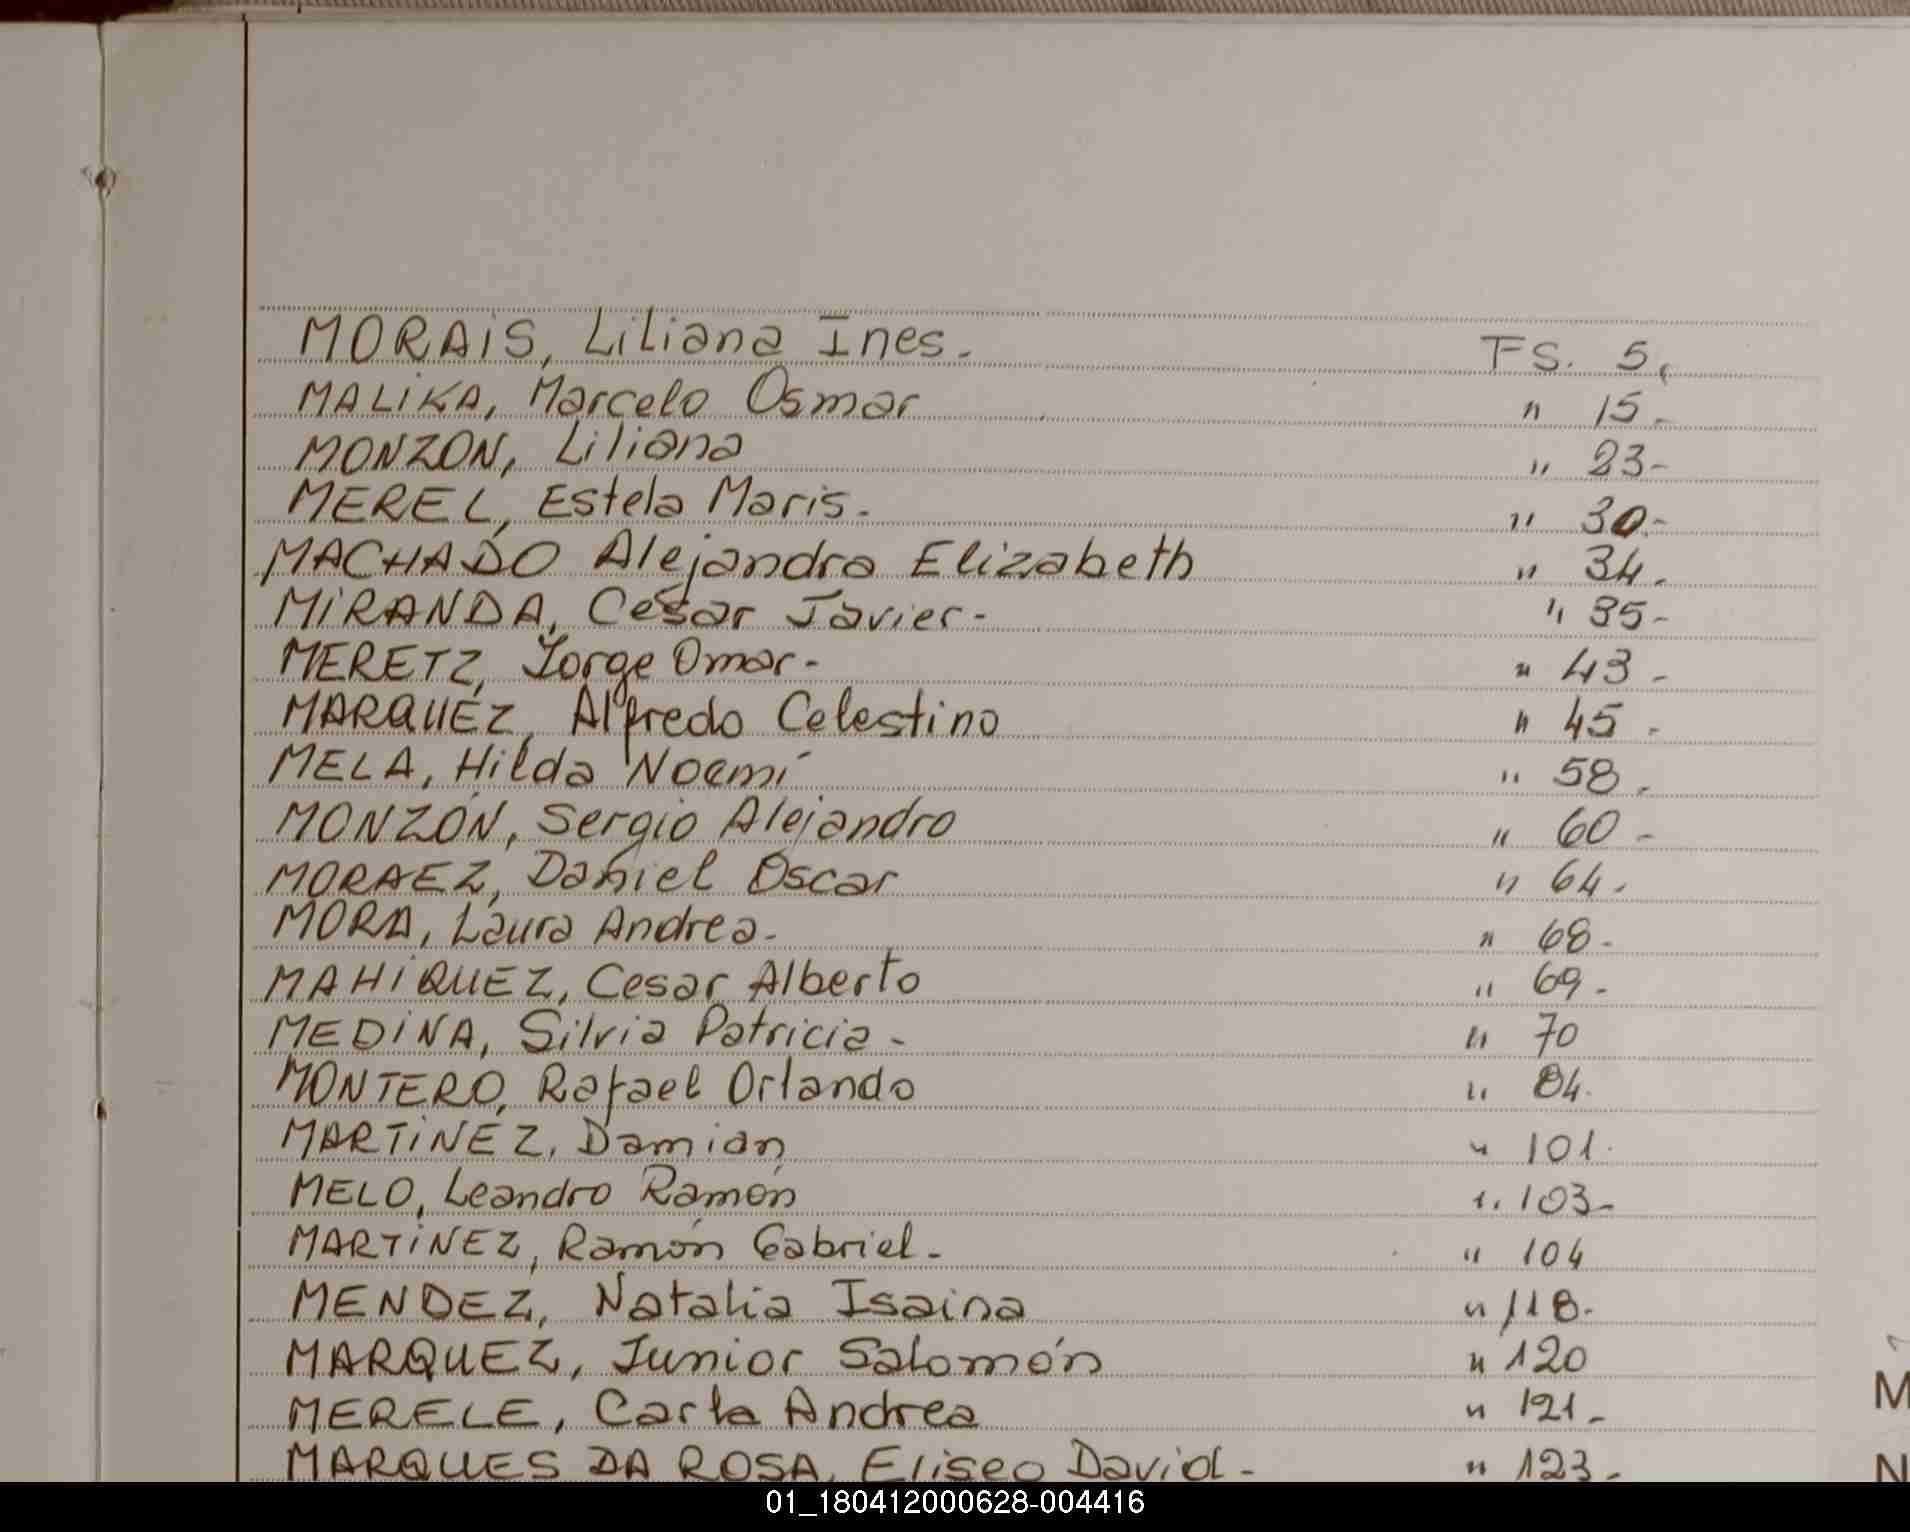 MORAIS, Liliana Ines. FS. 5.
MALIKA, Marcelo Osmar " 15.
MONZON, Liliana " 23-
MEREL, Estela Maris. " 30.-
MACHADO Alejandra Elizabeth " 34.
MIRANDA, César Javier- " 35-
MERETZ, Jorge Omar- " 43-
MARQUEZ, Alfredo Celestino " 45-
MELA, Hilda Noemí " 58.
MONZÓN, Sergio Alejandro " 60-
MORAEZ, Daniel Oscar " 64.
MORA, Laura Andrea- " 68-
MAHIQUEZ, Cesar Alberto " 69-
MEDINA, Silvia Patricia- " 70
MONTERO, Rafael Orlando " 84.
MARTINEZ, Damian " 101.
MELO, Leandro Ramón " 103-
MARTINEZ, Ramón Gabriel- " 104
MENDEZ, Natalia Isaina " 118-
MARQUEZ, Junior Salomón " 120
MERELE, Carla Andrea " 121-
MARQUES DA ROSA, Eliseo David- " 123-
M
N
01_180412000628-004416